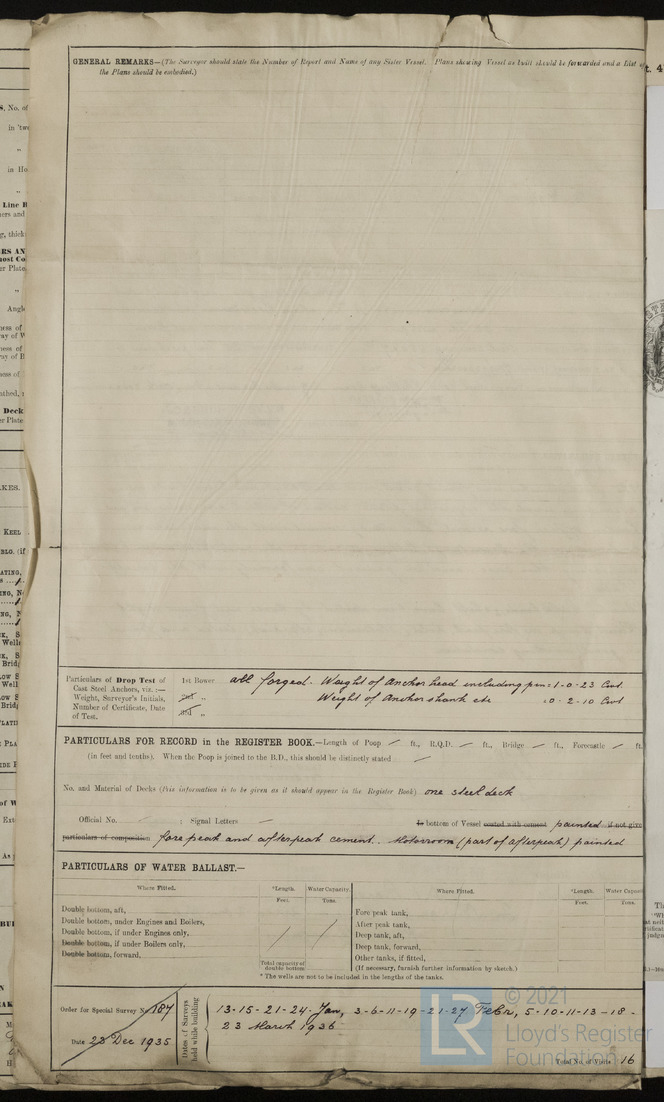 GENERAL REMARKS—(The Surveyor should state the Number of Report and Name of any Sister Vessel. Plans shewing Vessel as built should be forwarded and a List of
the Plans should be embodied.)
Particulars of Drop Test of
Cast Steel Anchors, viz.:—
Weight, Surveyor's Initials,
Number of Certificate, Date
of Test.
1st Bower all forged. Weight of Anchor head including pin = 1-0-23 Cwt.
2nd „ Weight of Anchor shank etc :0-2-10 Cwt
3rd „
PARTICULARS FOR RECORD in the REGISTER BOOK.—Length of Poop — ft., R.Q.D. — ft., Bridge — ft., Forecastle — ft.
(in feet and tenths). When the Poop is joined to the B.D., this should be distinctly stated —
No. and Material of Decks (this information is to be given as it should appear in the Register Book). one steel deck
Official No. ; Signal Letters — Is bottom of Vessel coated with cement painted if not give
particulars of composition fore peak and afterpeak cement. Motorroom (part of afterpeak) painted
PARTICULARS OF WATER BALLAST.—
Where Fitted. *Length. Water Capacity. Where Fitted. *Length. Water Capaci
Feet. Tons. Feet. Tons.
Double bottom, aft,
Double bottom, under Engines and Boilers,
Double bottom, if under Engines only,
Double bottom, if under Boilers only,
Double bottom, forward,
Total capacity of
double bottom
Fore peak tank,
After peak tank,
Deep tank, aft,
Deep tank, forward,
Other tanks, if fitted,
(If necessary, furnish further information by sketch.)
* The wells are not to be included in the lengths of the tanks.
Order for Special Survey No. 187
Date 23 Dec 1935
Dates of Surveys
held while building
13-15-21-24 Jan, 3-6-11-19-21-27 Febr, 5-10-11-13-18-
23 March 1936
Total No. of Visits 16
© 2021
Lloyd's Register
Foundation